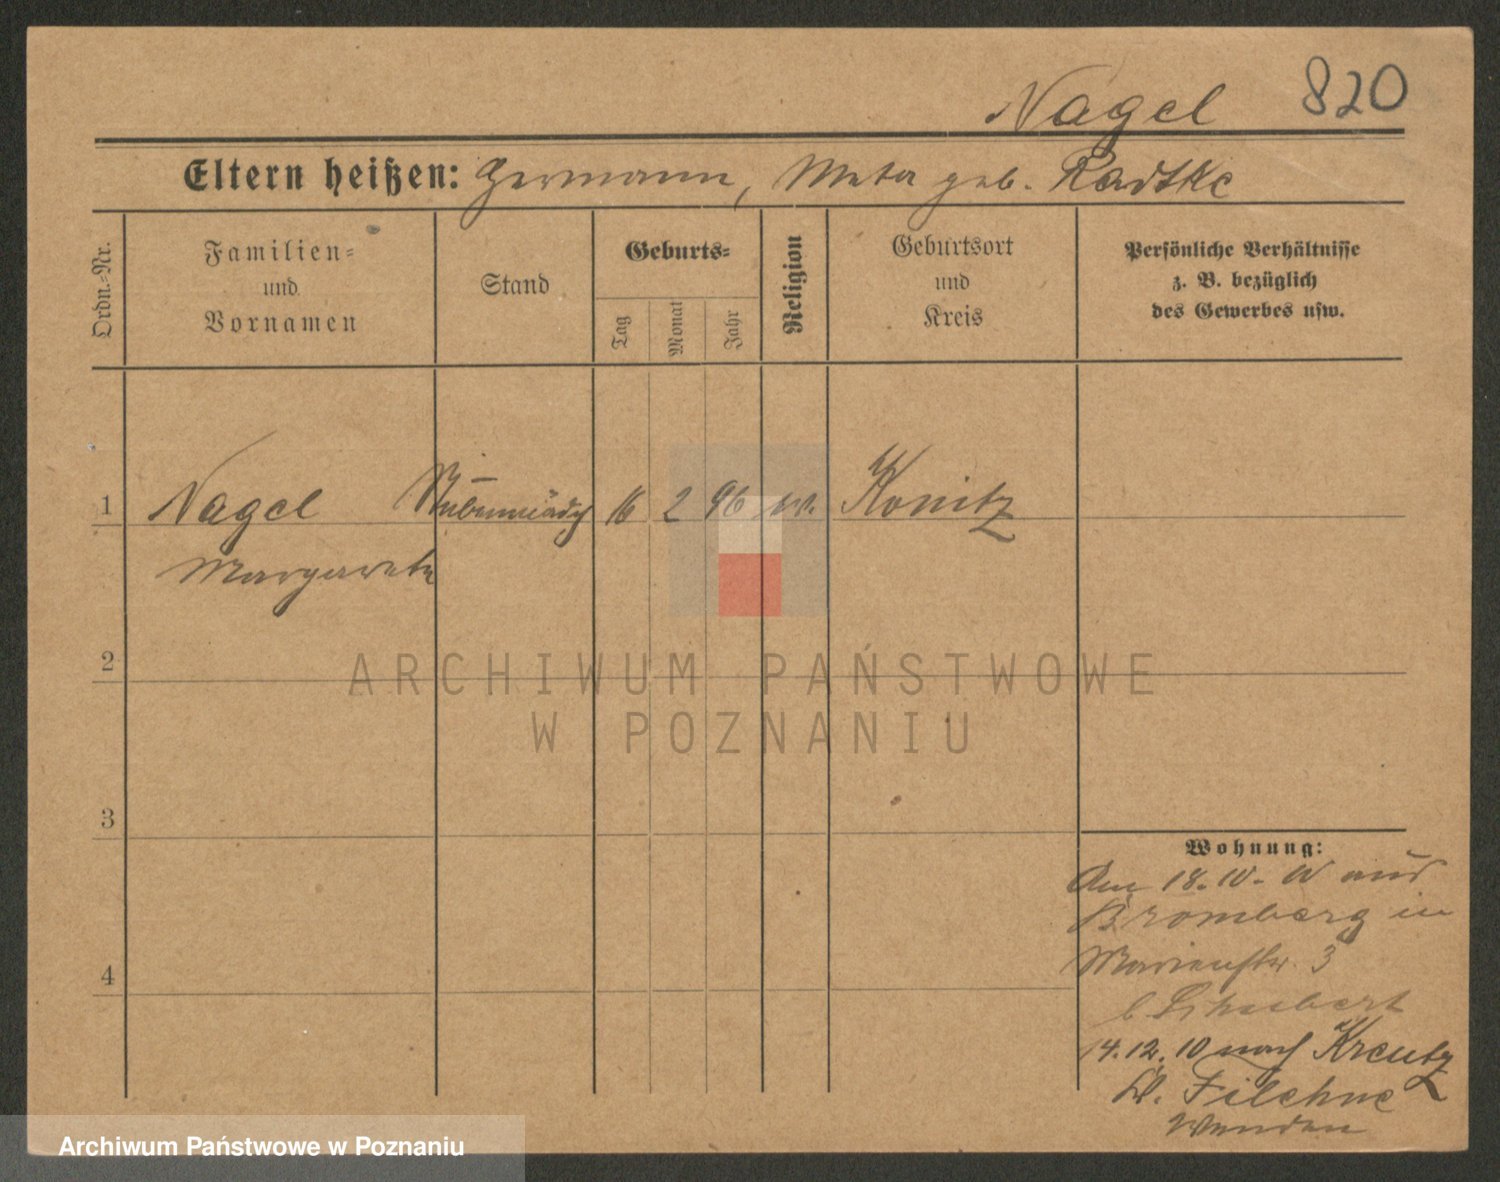 Nagel 820
Eltern heißen: Hermann, Meta geb. Radtke
Ordn.=Nr.
Familien=
und
Vornamen
Stand
Geburts=
Tag
Monat
Jahr
Religion
Geburtsort
und
Kreis
Persönliche Verhältnisse
z. B. bezüglich
des Gewerbes usw.
1 Nagel Stubenmädch 16 2 96 ev. Konitz
Margarete
2
ARCHIWUM PAŃSTWOWE
W POZNANIU
3
4
Wohnung:
Am 18.10. 10 aus
Bromberg in
Marienstr. 3
b Schubert
14.12.10 nach Kreutz
Kr. Filehne
Archiwum Państwowe w Poznaniu